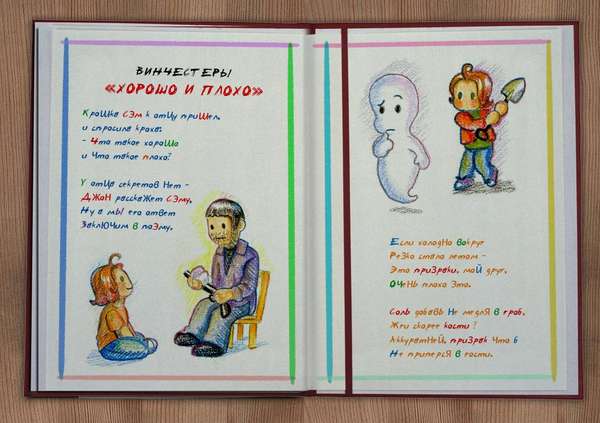 ВИНЧЕСТЕРЫ
«ХОРОШО И ПЛОХО»
Крошка Сэм к отцу пришел,
и спросила кроха:
- Что такое хорошо
и Что такое плохо?
У отца секретов Нет -
ДЖОН расскажет Сэму,
Ну а мы его ответ
ЗаклЮЧим в поэму.
Если холодНо вокруг
РеЗко стало летом -
Это приЗраки, моЙ друг,
ОЧеНЬ плохо Это.
Соль добавЬ Не медлЯ в гроб,
Жги скорее кости!
АккуратНеЙ, приЗрак Что б
Не приперсЯ в гости.